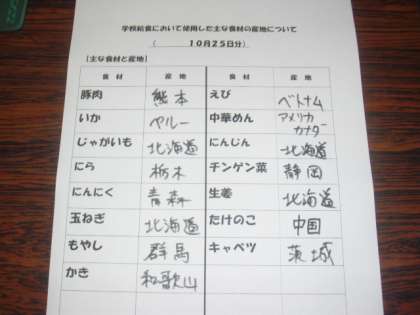 学校給食において使用した主な食材の産地について
( 10月25日分)
[主な食材と産地]
食材 産地 食材 産地
豚肉 熊本 えび ベトナム
いか ペルー 中華めん アメリカ カナダ
じゃがいも 北海道 にんじん 北海道
にら 栃木 チンゲン菜 静岡
にんにく 青森 生姜 北海道
玉ねぎ 北海道 たけのこ 中国
もやし 群馬 キャベツ 茨城
かき 和歌山